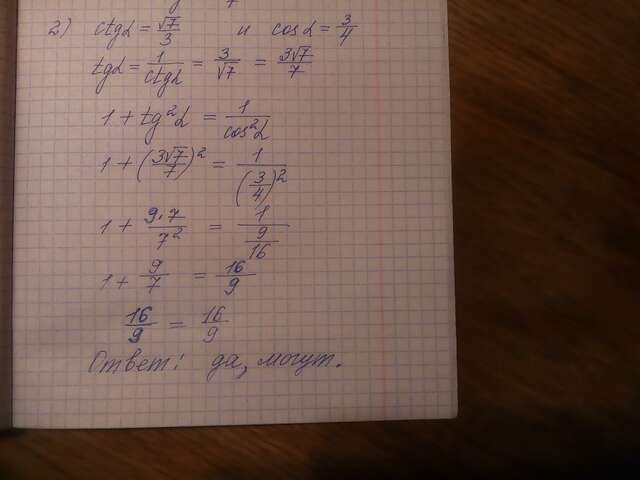 2) ctgα = √7/3 и cosα = 3/4
tgα = 1/ctgα = 3/√7 = 3√7/7
1 + tg²α = 1/cos²α
1 + (3√7/7)² = 1/(3/4)²
1 + 9·7/7² = 1/(9/16)
1 + 9/7 = 16/9
16/9 = 16/9
Ответ: да, могут.